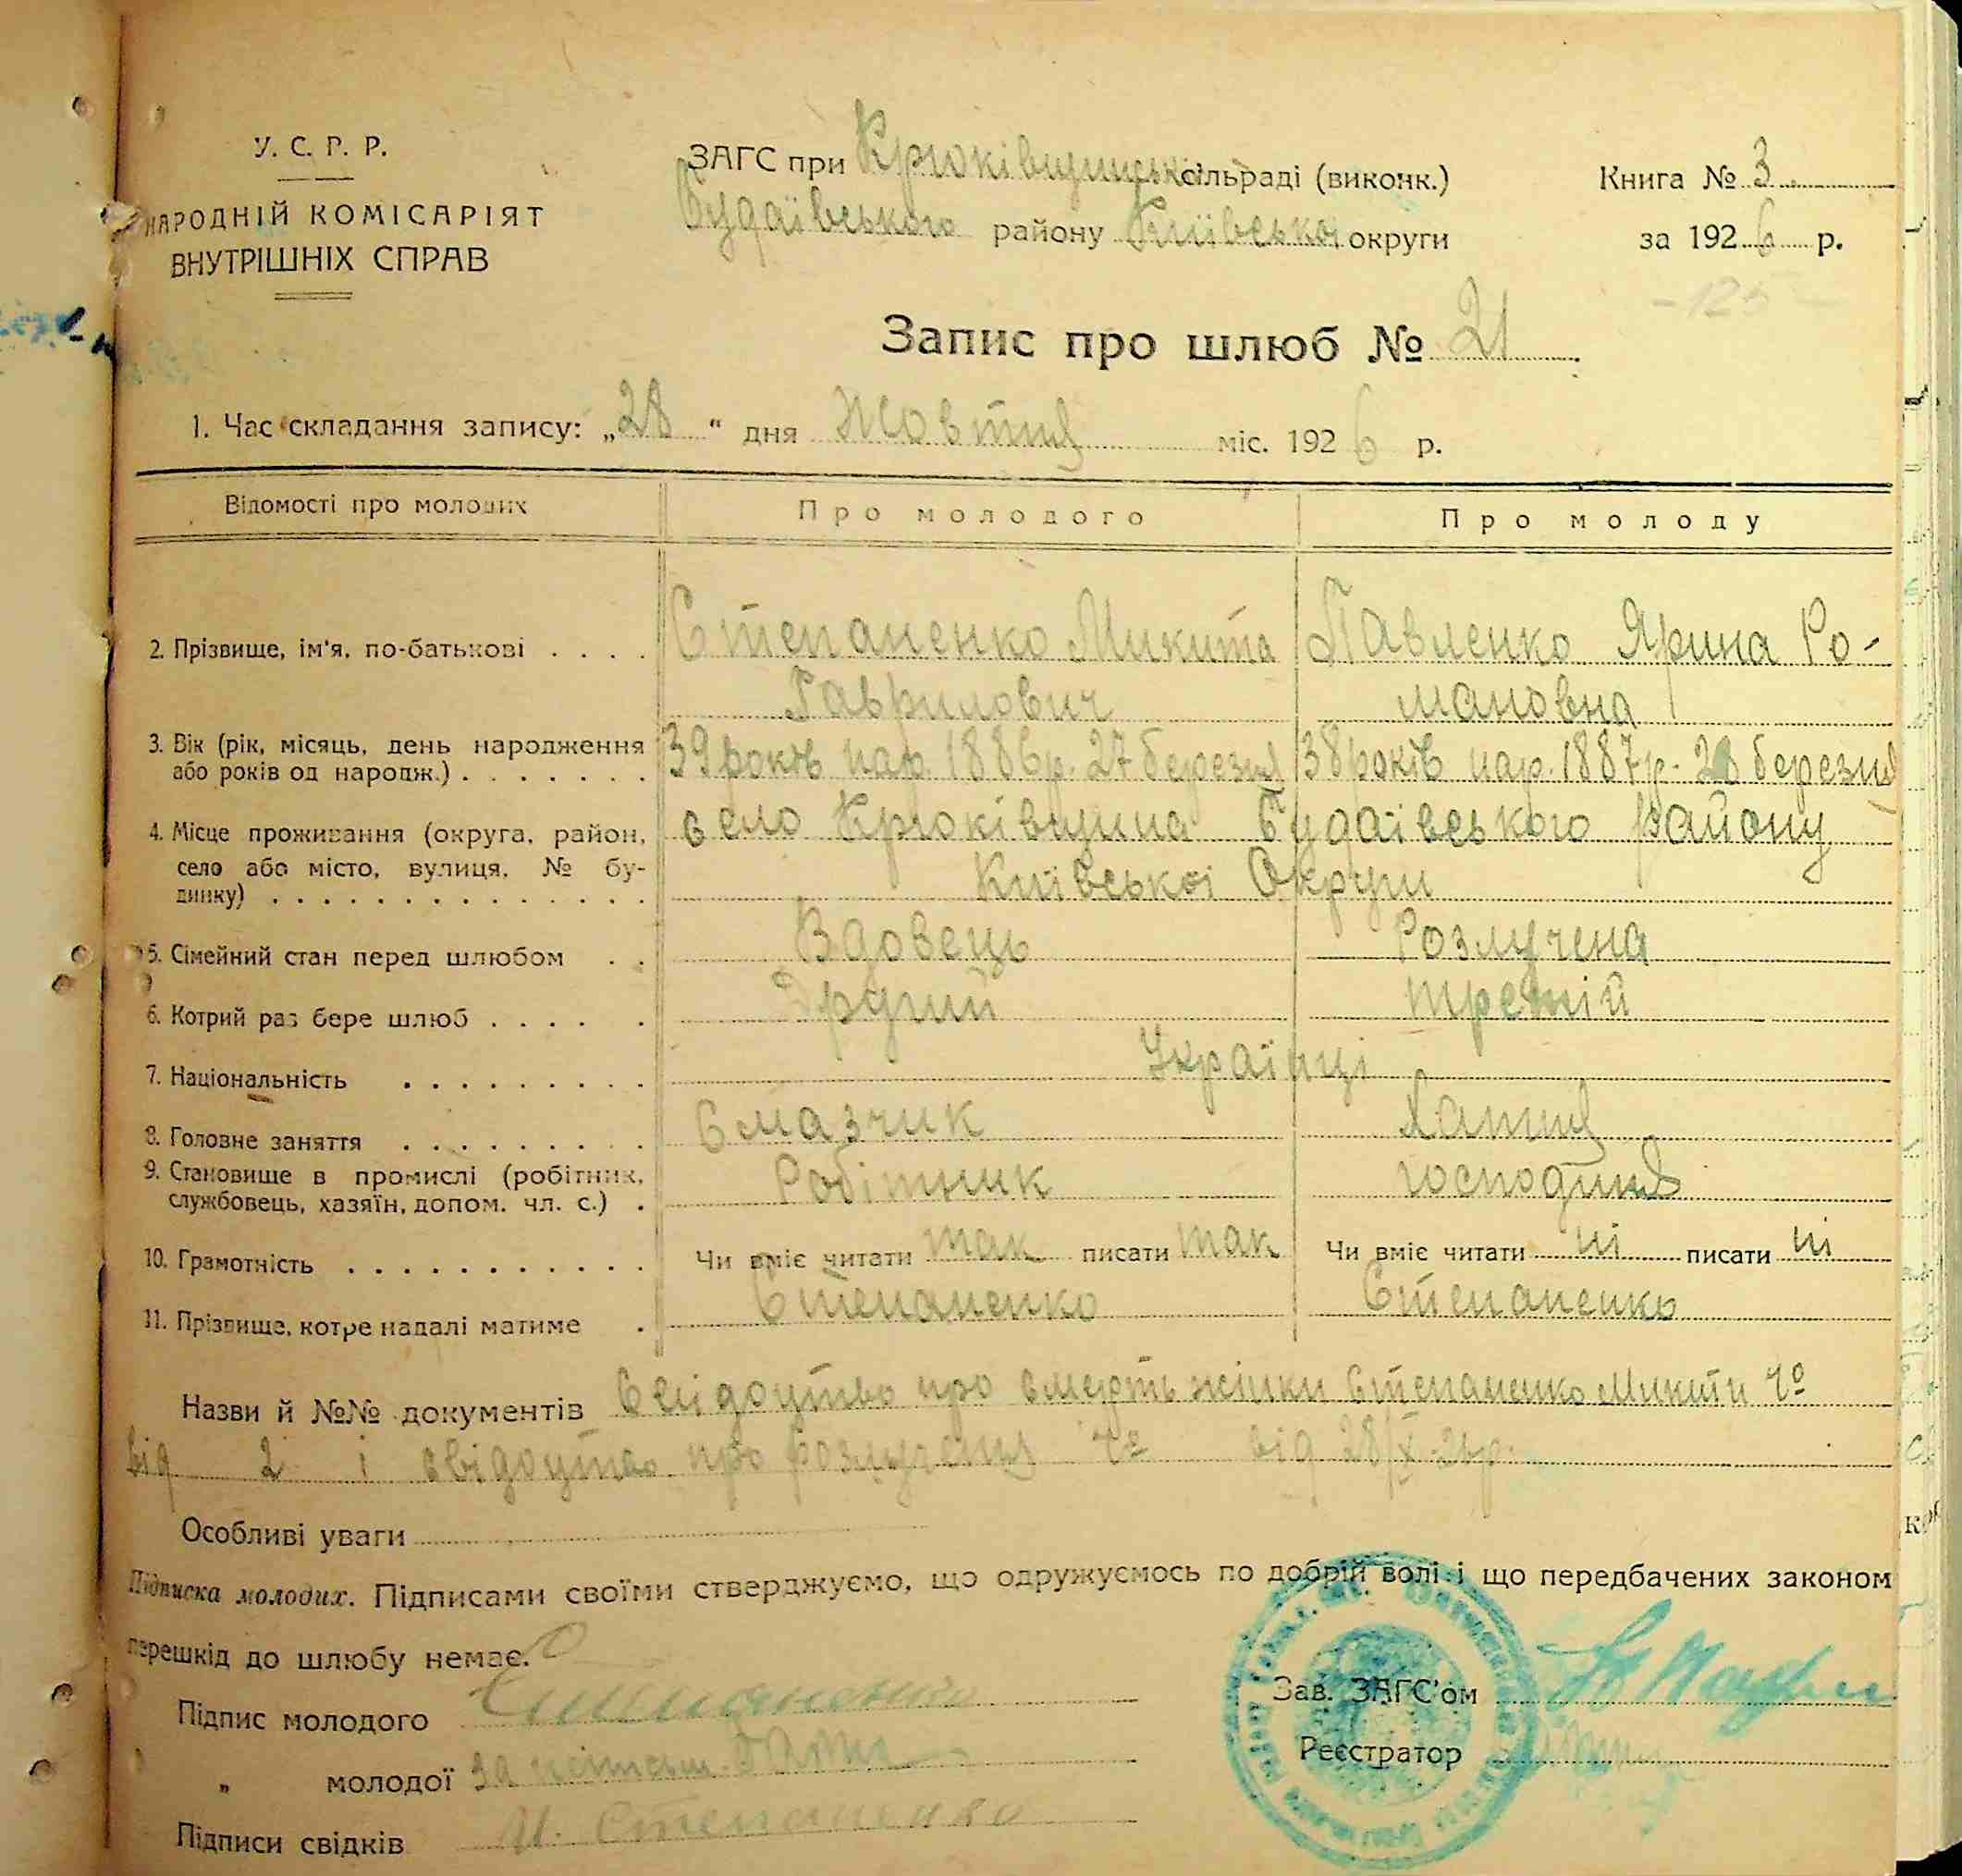 У. С. Р. Р.
НАРОДНІЙ КОМІСАРІЯТ
ВНУТРІШНІХ СПРАВ
ЗАГС при Крюківщинській сільраді (виконк.)
Будаївського району Київської округи
Книга № 3.
за 1926 р.
- 125 -
Запис про шлюб № 21
1. Час складання запису: „28“ дня Жовтня міс. 1926 р.
Відомості про молодих Про молодого Про молоду
2. Прізвище, ім'я, по-батькові . . . . Степаненко Микита Павленко Ярина Ро-
Гаврилович мановна
3. Вік (рік, місяць, день народження 39 років нар. 1886 р. 27 березня 38 років нар. 1887 р. 28 березня
або років од народж.) . . . . . . .
4. Місце проживання (округа, район, село Крюківщина Будаївського району
село або місто, вулиця, № бу- Київської Округи
динку) . . . . . . . . . . . . . . .
5. Сімейний стан перед шлюбом . . Вдовець Розлучена
6. Котрий раз бере шлюб . . . . . Другий третій
7. Національність . . . . . . . . . . Українці
8. Головне заняття . . . . . . . . . . Смазчик Хатня
9. Становище в промислі (робітник, Робітник господиня
службовець, хазяїн, допом. чл. с.) .
10. Грамотність . . . . . . . . . . . . Чи вміє читати так писати так Чи вміє читати ні писати ні
11. Прізвище, котре надалі матиме . Степаненко Степаненко
Назви й №№ документів Свідоцтво про смерть жінки Степаненко Микити №
від 2 і свідоцтво про розлучення № від 28/X-26р.
Особливі уваги
Підписка молодих. Підписами своїми стверджуємо, що одружуємось по добрій волі і що передбачених законом
перешкід до шлюбу немає.
Підпис молодого Степаненко
„ молодої за
Підписи свідків И. Степаненко
Зав. ЗАГС'ом
Реєстратор